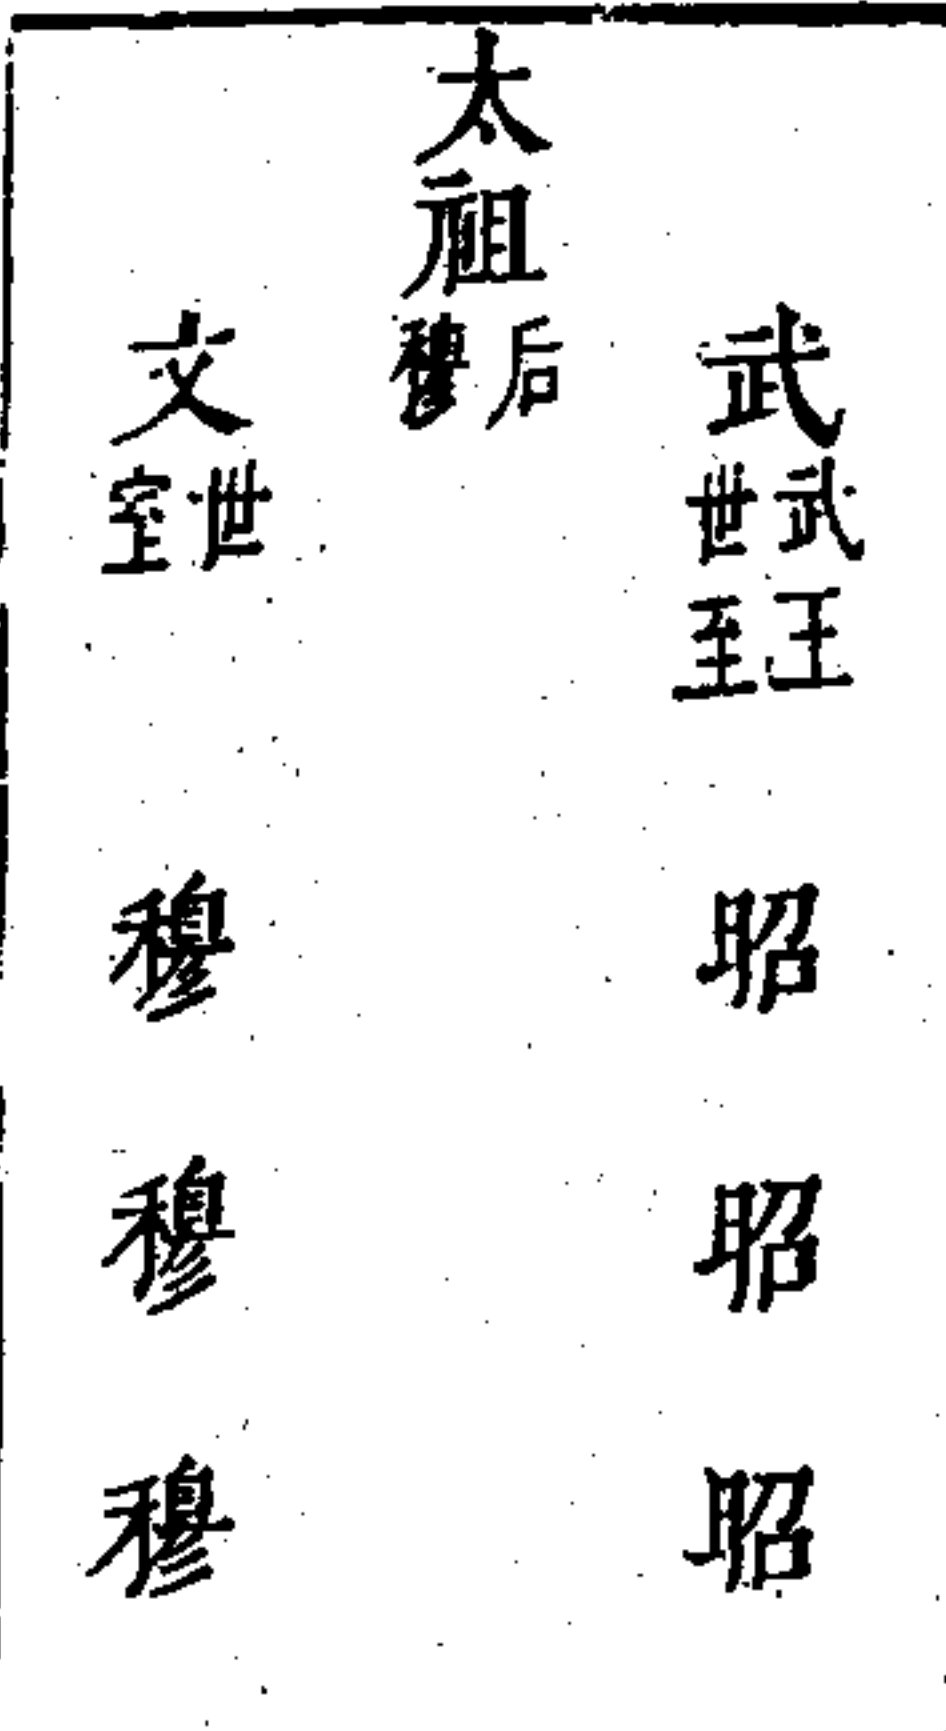 武
武王
世至
昭
昭
昭
太祖
后
穆
文
世
室
穆
穆
穆